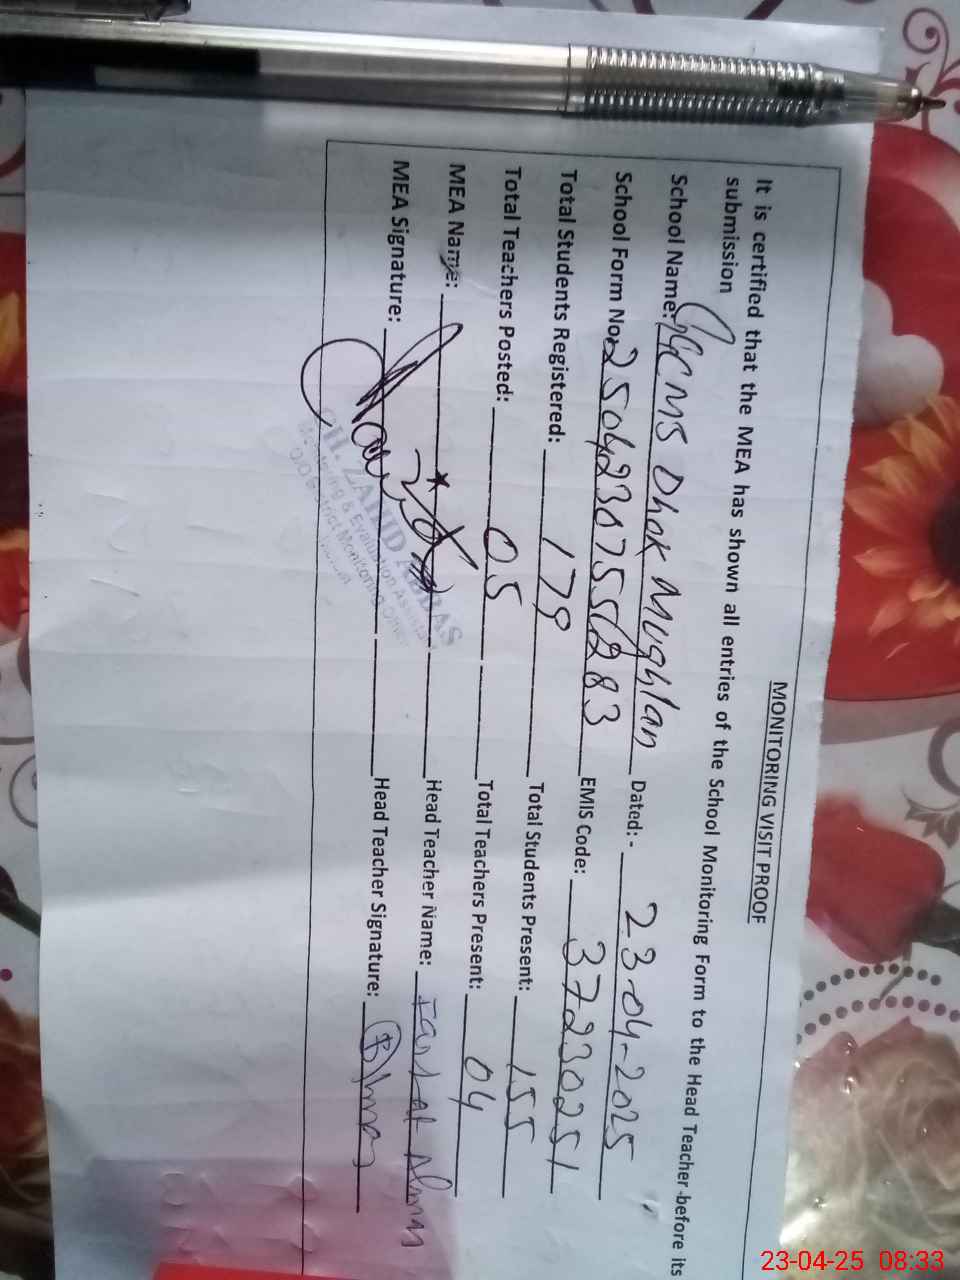 MONITORING VISIT PROOF
It is certified that the MEA has shown all entries of the School Monitoring Form to the Head Teacher -before its
submission
School Name: GGCMS Dhok Mughlan Dated: - 23-04-2025
School Form No: EMIS Code: 37230251
Total Students Registered: 179 Total Students Present: 155
Total Teachers Posted: 05 Total Teachers Present: 04
MEA Name: Head Teacher Name:
MEA Signature: Head Teacher Signature:
CH. ZAHID ABBAS
Monitoring & Evaluation Assistant
O/O District Monitoring Officer
23-04-25 08:33